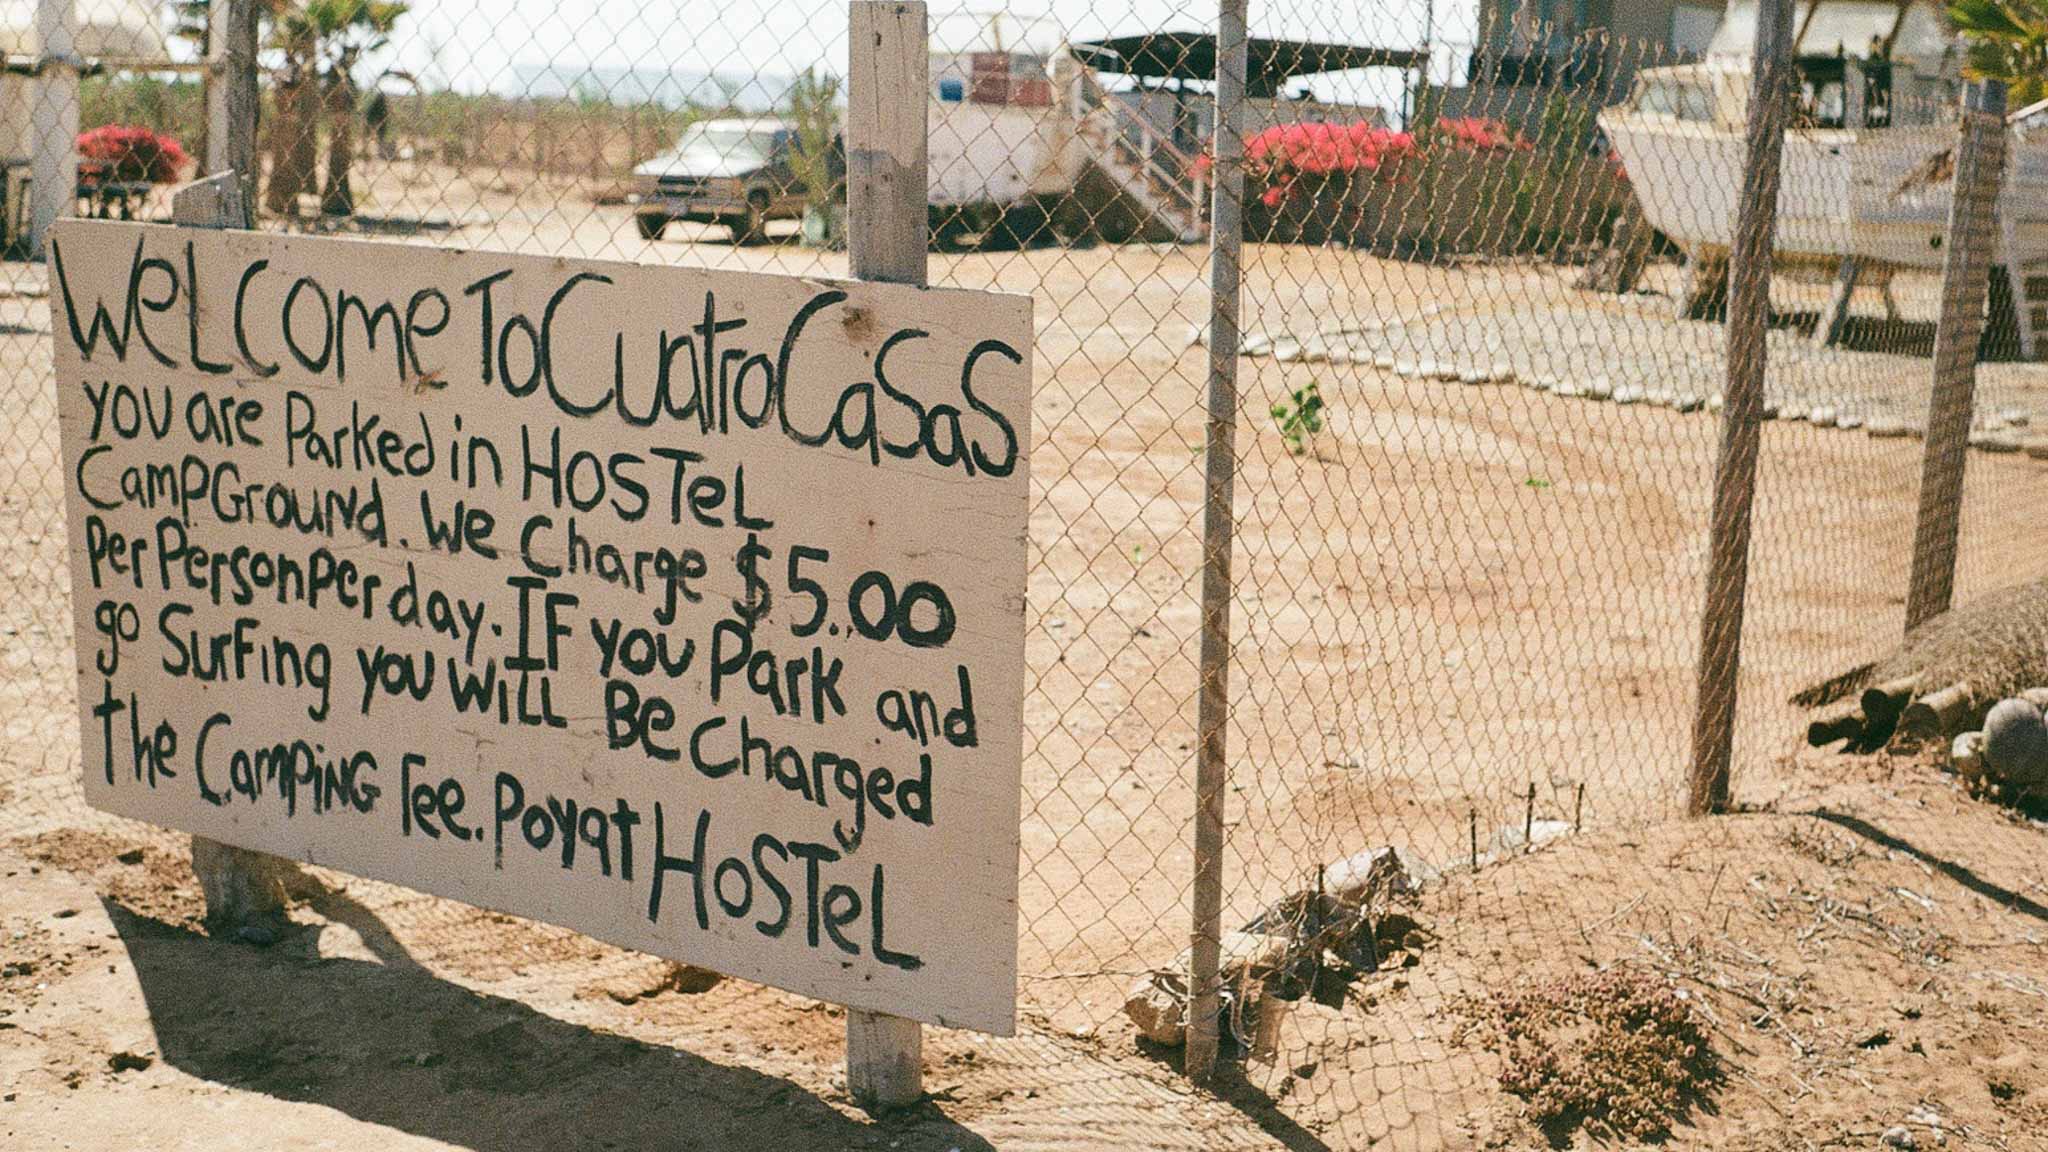 WeLcome To CuatroCaSaS
you are Parked in HosTeL
CampGround. We Charge $5.00
Per Person Per day. IF you Park and
go Surfing you wiLL Be Charged
the CampiNG Fee. Poyat HoSTeL